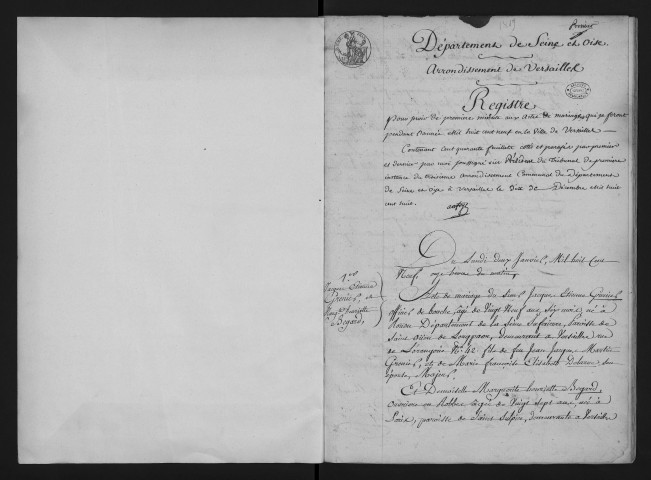 1809
Premier
Département de Seine et Oise.
Arrondissement de Versailles
Registre
Pour servir de première minute aux actes de mariages qui se feront
pendant l'année mil huit cent neuf en la Ville de Versailles
Contenant cent quarante feuillets cotés et paraphés par premier
et dernier par moi soussigné Président du Tribunal de première
instance du troisième arrondissement Communal du Département
de Seine et oise à Versailles le dix de Décembre mil huit
cent huit.
Du Lundi deux Janvier, Mil huit Cent
Neuf, onze heures du matin,
1er
Jacques Etienne
Grenier, et
Margte henriette
Begard,
Acte de mariage du Sieur Jacques Etienne Grenier
officier de bouche, agé de Vingt Neuf ans, six mois, né à
Rouen Département de la Seine Inférieure, Paroisse de
Saint de Longpaon, demeurant à Versailles rue
de No. 42 fils de feu Jean Jacques Martin
Grenier, et de Marie françoise Elisabeth Delarue Son
épouse, Majeur,
Et Demoiselle Marguerite henriette Begard,
ouvrière en Robbes agée de Vingt sept ans, née à
Paris, paroisse de Saint Sulpice, demeurante à Versailles